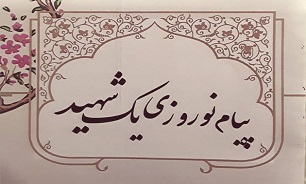 پیام نوروزی یک شهید